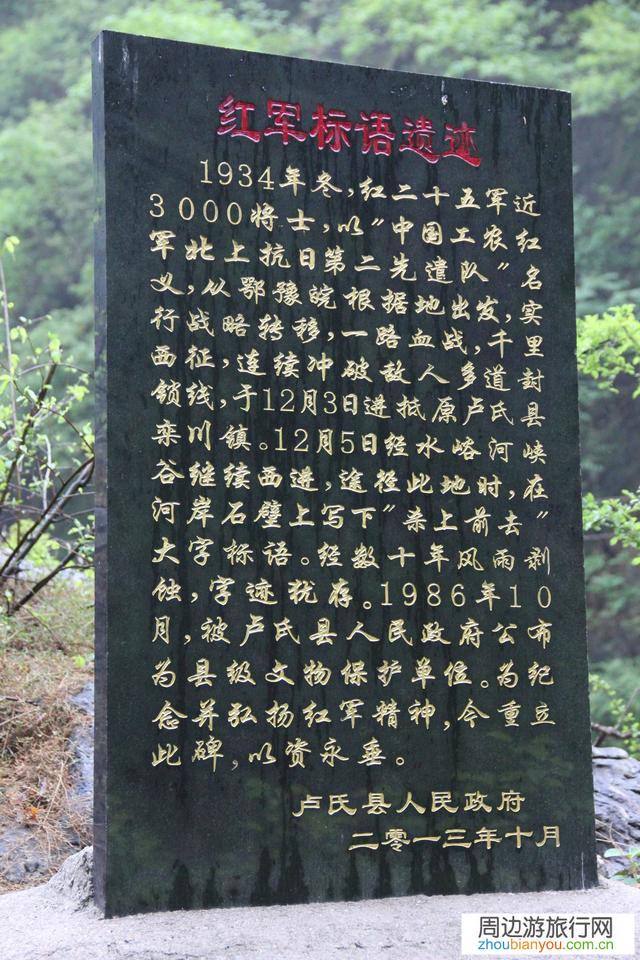 红军标语遗迹
1934年冬，红二十五军近
3000将士，以“中国工农红
军北上抗日第二先遣队”名
义，从鄂豫皖根据地出发，实
行战略转移，一路血战，千里
西征，连续冲破敌人多道封
锁线，于12月3日进抵原卢氏县
栾川镇。12月5日经水峪河峡
谷继续西进，途径此地时，在
河岸石壁上写下“杀上前去”
大字标语。经数十年风雨剥
蚀，字迹犹存。1986年10
月，被卢氏县人民政府公布
为县级文物保护单位。为纪
念并弘扬红军精神，今重立
此碑，以资永垂。
卢氏县人民政府
二零一三年十月
周边游旅行网
zhoubianyou.com.cn